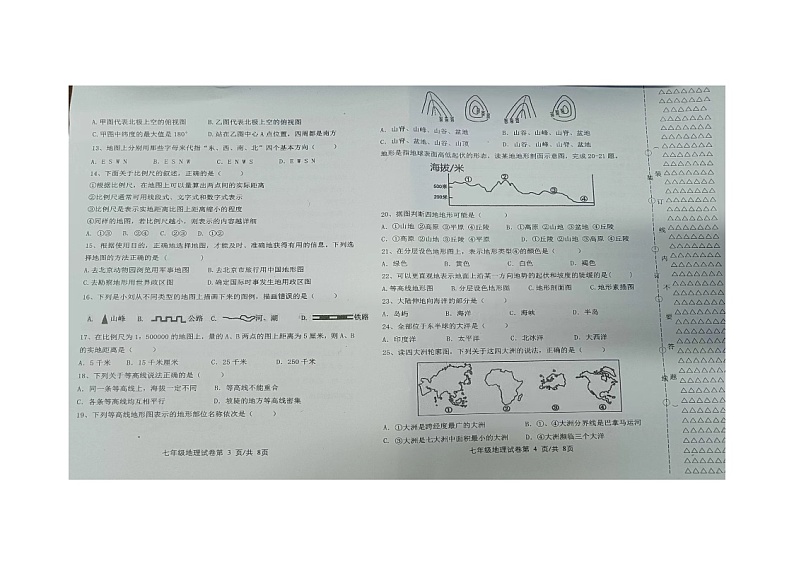 A.甲图代表北极上空的俯视图 B.乙图代表北极上空的俯视图
C.甲图中纬度的最大值是180° D.站在乙图中心A点位置，四周都是南方
13、地图上分别用那些字母来代指“东、西、南、北”四个基本方向（ ）
A. E S W N B. E S N W C. E N W S D. E W S N
14、下面关于比例尺的叙述，正确的是（ ）
①根据比例尺，在地图上可以量算出两点间的实际距离
②比例尺通常可用线段式、文字式和数字式表示
③比例尺是表示实地距离比图上距离缩小的程度
④同样的地图，若比例尺越小，则表示的内容越详细
A. ①③ B. ②④ C. ②③ D. ①②
15、根据使用目的，正确地选择地图，才能及时、准确地获得有用的信息，下列选
择地图的方法正确的是（ ）
A.去北京动物园浏览用军事地图 B.去北京市旅行用中国地形图
C.去勘察地形用世界政区图 D.确定国际时事发生地用政区图
16、下列是小刘从不同类型的地图上描画下来的图例，描画错误的是（ ）
A. 山峰 B. 公路 C. 河、湖 D. 铁路
17、在比例尺为1：500000的地图上，量的A、B两点的图上距离为5厘米，则A、B
的实地距离是（ ）
A．5千米 B．15千米厘米 C．25千米 D．250千米
18、下列关于等高线说法正确的是（ ）
A．同一条等高线上，海拔一定不同 B．等高线不能重合
C．各条等高线均互相平行 D．坡陡的地方等高线密集
19、下列等高线地形图表示的地形部位名称依次是（ ）
七年级地理试卷第 3 页/共 8页
A．山脊、山峰、山谷、盆地 B．山谷、山峰、山脊、盆地
C．山脊、盆地、山谷、山顶 D．山谷、盆地、山脊、山峰
地形是指地球表面高低起伏的形态。读某地地形剖面示意图，完成20-21题。
海拔/米
500米
200米
① ② ③ ④
20、据图判断四地地形可能是（ ）
A．①山地 ②高原 ③平原 ④丘陵 B．①高原 ②山地 ③盆地 ④丘陵
C．①高原 ②山地 ③丘陵 ④平原 D．①丘陵 ②山地 ③高原 ④丘陵
21、在分层设色地形图上，表示地形类型④的颜色是（ ）
A．绿色 B．黄色 C．白色 D．褐色
22、可以更直观地表示地面上沿某一方向地势的起伏和坡度的陡缓的是( )
A.等高线地形图 B．分层设色地形图 C.地形剖面图 C.地形素描图
23、大陆伸向海洋的部分是（ ）
A．岛屿 B．海洋 C．海峡 D．半岛
24、全部位于东半球的大洋是（ ）
A．印度洋 B．太平洋 C．北冰洋 D．大西洋
25、读四大洲轮廓图，下列关于这四大洲的说法，正确的是（ ）
① ② ③ ④
A．①大洲是跨经度最广的大洲 B．①、④大洲分界线是巴拿马运河
C．③大洲是七大洲中面积最小的大洲 D．④大洲濒临三个大洋
七年级地理试卷第 4 页/共 8页
装
订
线
内
不
要
答
题